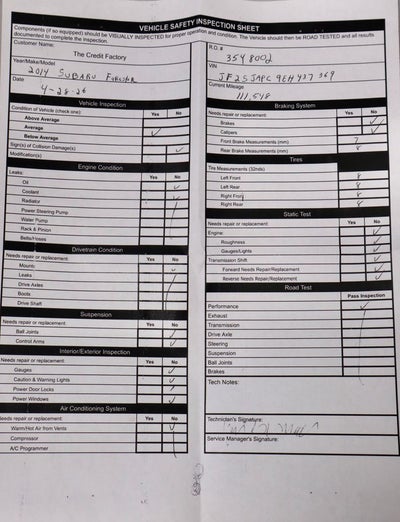 VEHICLE SAFETY INSPECTION SHEET
Components (if so equipped) should be VISUALLY INSPECTED for proper operation and condition. The Vehicle should then be ROAD TESTED and all results
documented to complete the inspection.
Customer Name:
The Credit Factory
Year/Make/Model
2014 SUBARU Forester
Date
4-28-26
Vehicle Inspection
Condition of Vehicle (check one): Yes No
Above Average
Average
Below Average
Sign(s) of Collision Damage(s)
Modification(s)
Engine Condition
Leaks: Yes No
Oil
Coolant
Radiator
Power Steering Pump
Water Pump
Rack & Pinion
Belts/Hoses
Drivetrain Condition
Needs repair or replacement: Yes No
Mounts
Leaks
Drive Axles
Boots
Drive Shaft
Suspension
Needs repair or replacement: Yes No
Ball Joints
Control Arms
Interior/Exterior Inspection
Needs repair or replacement: Yes No
Gauges
Caution & Warning Lights
Power Door Locks
Power Windows
Air Conditioning System
Needs repair or replacement: Yes No
Warm/Hot Air from Vents
Compressor
A/C Programmer
R.O. #
3548002
VIN
Current Mileage
111,548
Braking System
Needs repair or replacement: Yes No
Brakes
Calipers
Front Brake Measurements (mm) 7
Rear Brake Measurements (mm) 8
Tires
Tire Measurements (32nds)
Left Front 8
Left Rear 8
Right Front 8
Right Rear 8
Static Test
Needs repair or replacement: Yes No
Engine:
Roughness
Gauges/Lights
Transmission Shift
Forward Needs Repair/Replacement
Reverse Needs Repair/Replacement
Road Test
Pass Inspection
Performance
Exhaust
Transmission
Drive Axle
Steering
Suspension
Ball Joints
Brakes
Tech Notes:
Technician's Signature:
Service Manager's Signature: